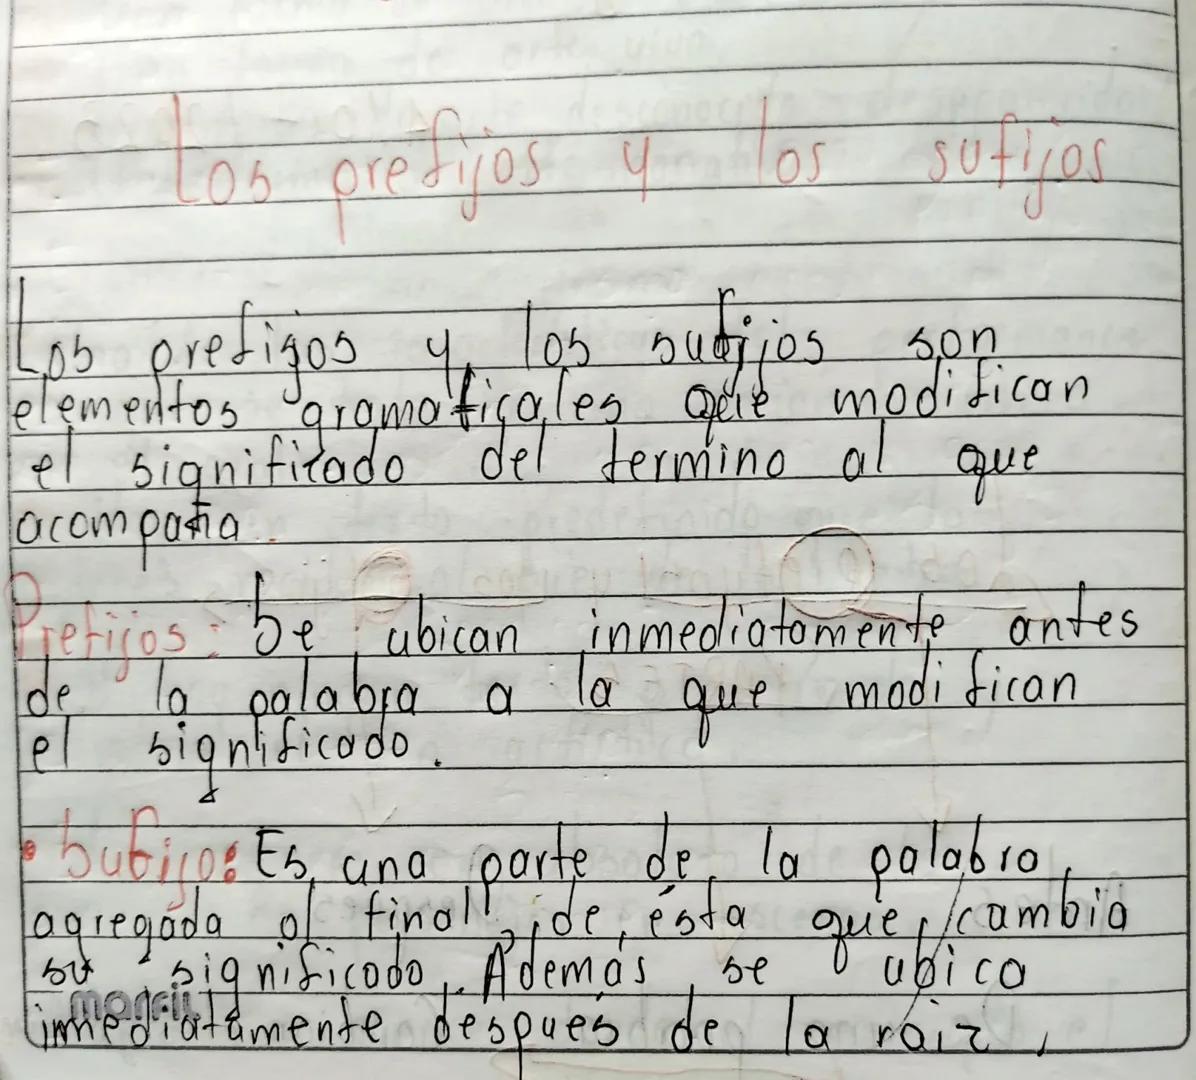 Los prefijos y los sufijos
Los prefigos y los sufijos son
elementos gramaticales que modifican
el significado del termino al que
acompaña.
Prefijos: Se ubican inmediatamente antes
de la palabra a la que modifican
el significado.
• Sufijo: Es una parte de la palabra
agregada al final de ésta que cambia
su significado. Además se ubica
inmediatamente después de la raiz,